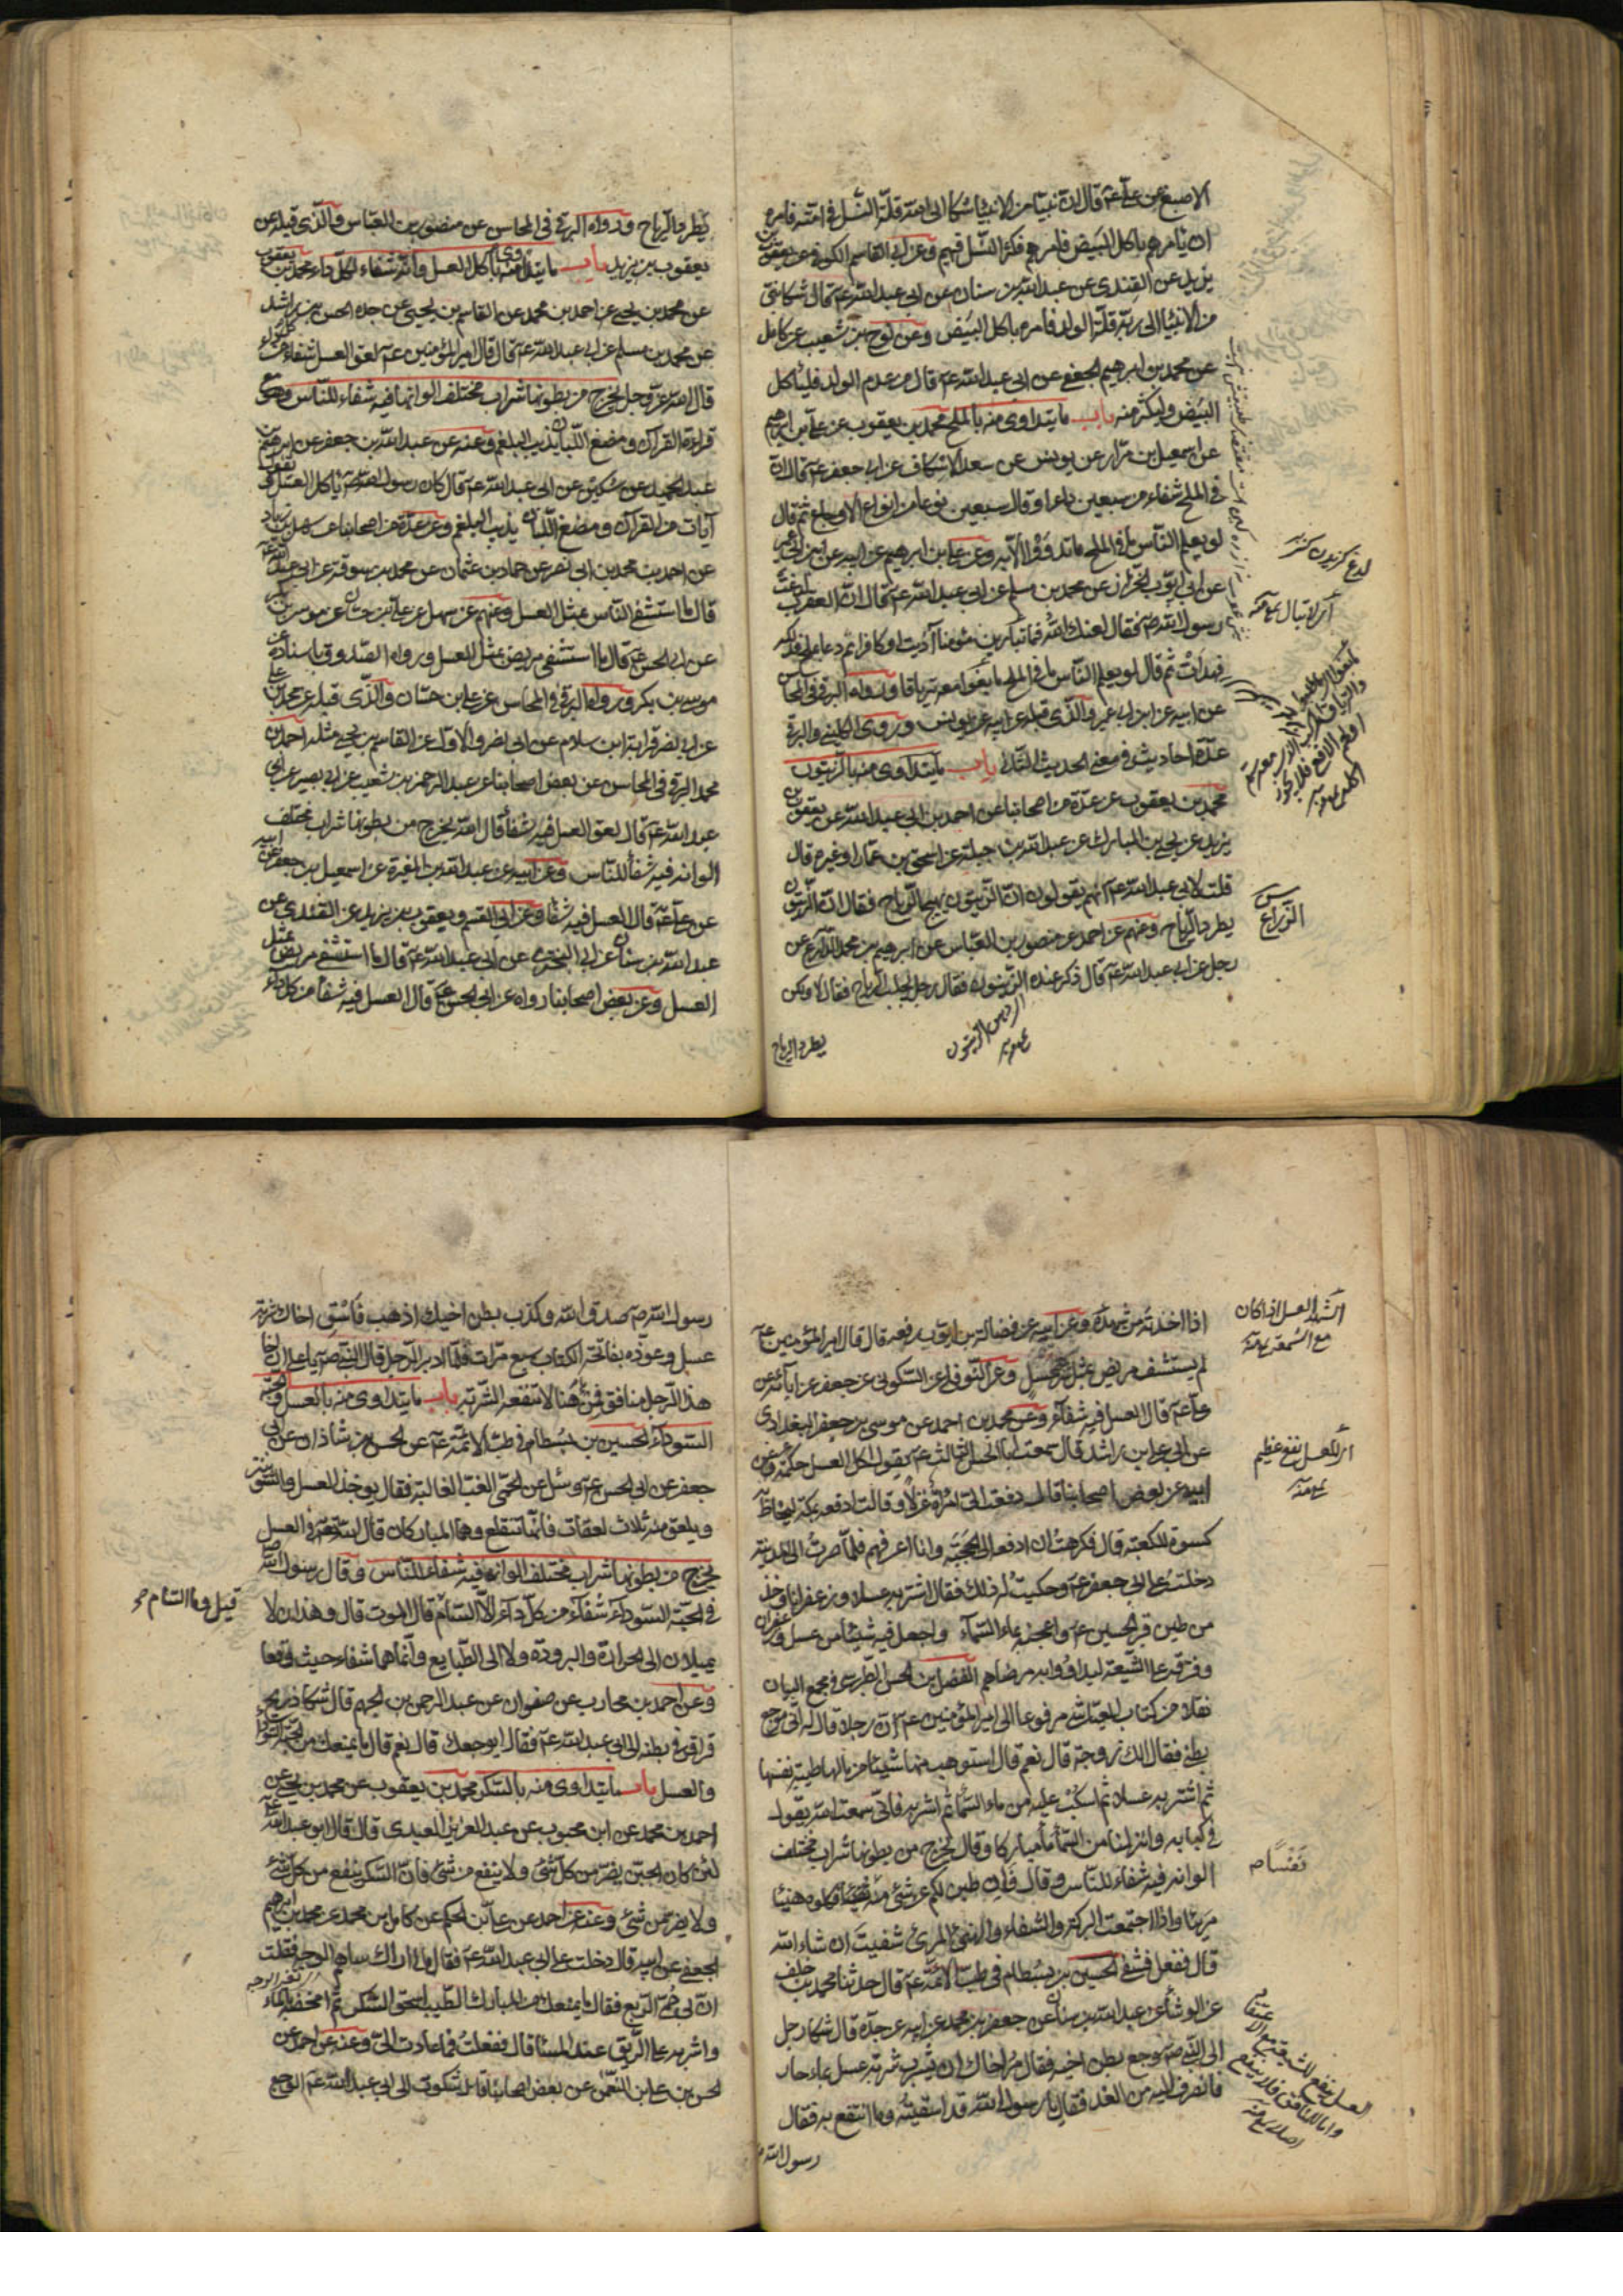 الاصبغ عن علي عم قال ان نبيا من الانبياء شكا الى الله قلة النسل في امته فامره
ان يامرهم باكل البيض فامرهم فكثر النسل فيهم وعن ابي القاسم الكوفي وعن يعقوب بن
يزيد عن القندي عن عبد الله بن سنان عن ابي عبد الله عم قال شكا نبي
من الانبياء الى ربه قلة الولد فامره باكل البيض وعن نوح بن شعيب عن كامل
عن محمد بن ابرهيم الجعفي عن ابي عبد الله عم قال من عدم الولد فلياكل
البيض وليكثر منه باب ما يتداوى منه بالملح محمد بن يعقوب عن علي بن ابرهيم
عن اسمعيل بن مرار عن يونس عن سعد الاسكاف عن ابي جعفر عم قال ان
في الملح شفاء من سبعين داء او قال سبعين نوعا من انواع الاوجاع ثم قال
لو يعلم الناس ما في الملح ما تداووا الا به وعن علي بن ابرهيم عن ابيه عن ابن ابي عمير
عن ابي ايوب الخزاز عن محمد بن مسلم عن ابي عبد الله عم قال ان العقرب لدغت
رسول الله ص فقال لعنك الله فما تبالين مؤمنا آذيت او كافرا ثم دعا بملح فدلكه
فهدأت ثم قال لو يعلم الناس ما في الملح ما بغوا معه ترياقا ورواه البرقي في المحاسن
عن ابيه عن ابن ابي عمير والذي قبله عن ابيه عن يونس وروى الكليني والبرقي
عدة احاديث في معنى الحديث الثاني باب ما يتداوى منه بالزيتون
محمد بن يعقوب عن عدة من اصحابنا عن احمد بن ابي عبد الله عن يعقوب بن
يزيد عن يحيى بن المبارك عن عبد الله بن جبلة عن اسحق بن عمار او غيره قال
قلت لابي عبد الله عم انهم يقولون ان الزيتون يهيج الرياح فقال ان الزيتون
يطرد الرياح وعنهم عن احمد عن منصور بن العباس عن ابرهيم بن محمد الذارع عن
رجل عن ابي عبد الله عم قال ذكر عنده الزيتون فقال رجل يجلب الرياح فقال لا ولكن
يطرد الرياح
لدغ كزيدن كزنده
الزراع
يطرد الرياح ورواه البرقي في المحاسن عن منصور بن العباس والذي قبله عن
يعقوب بن يزيد باب ما يتداوى منه باكل العسل وانه شفاء لكل داء محمد بن يعقوب
عن محمد بن يحيى عن احمد بن محمد عن القاسم بن يحيى عن جده الحسن بن راشد
عن محمد بن مسلم عن ابي عبد الله عم قال قال امير المؤمنين عم لعق العسل شفاء من كل داء
قال الله عز وجل يخرج من بطونها شراب مختلف الوانه فيه شفاء للناس وهو مع
قراءة القرآن ومضغ اللبان يذيب البلغم وعنه عن عبد الله بن جعفر عن ابرهيم بن
عبد الحميد عن سكين عن ابي عبد الله عم قال كان رسول الله ص ياكل العسل ويقول
آيات من القرآن ومضغ اللبان يذيب البلغم وعن عدة من اصحابنا عن سهل بن زياد
عن احمد بن محمد بن ابي نصر عن حماد بن عثمان عن محمد بن سوقة عن ابي عبد الله عم
قال ما استشفى الناس بمثل العسل وعنهم عن سهل عن علي بن حسان عن موسى بن بكر
عن ابي الحسن عم قال ما استشفى مريض بمثل العسل ورواه الصدوق باسناده عن
موسى بن بكر ورواه البرقي في المحاسن عن علي بن حسان والذي قبله عن محمد بن علي
عن ابي نصر قرابة ابن سلام عن ابن ابي نصر والاول عن القاسم بن يحيى مثله احمد بن
محمد البرقي في المحاسن عن بعض اصحابنا عن عبد الرحمن بن شعيب عن ابي بصير عن ابي
عبد الله عم قال لعق العسل فيه شفاء قال الله يخرج من بطونها شراب مختلف
الوانه فيه شفاء للناس وعن ابيه عن عبد الله بن المغيرة عن اسمعيل بن جعفر عن ابيه
عن علي عم قال العسل فيه شفاء وعن ابي القسم ويعقوب بن يزيد عن القندي عن
عبد الله بن سنان عن ابي البختري عن ابي عبد الله عم قال ما استشفى مريض بمثل
العسل وعن بعض اصحابنا رواه عن ابي الحسن عم قال العسل فيه شفاء من كل داء
اذا اخذته من شهده وعن ابيه عن فضالة بن ايوب رفعه قال قال امير المؤمنين عم
لم يستشف مريض بمثل شربة عسل وعن النوفلي عن السكوني عن جعفر عن آبائه عن
علي عم قال العسل فيه شفاء وعن محمد بن احمد عن موسى بن جعفر البغدادي
عن ابي علي بن راشد قال سمعت ابا الحسن الثالث عم يقول اكل العسل حكمة وعن
ابيه عن بعض اصحابنا قال دفعت الي امرأة غزلا وقالت ادفعه بمكة ليخاط به
كسوة للكعبة قال فكرهت ان ادفعه الى الحجبة وانا اعرفهم فلما صرت الى المدينة
دخلت على ابي جعفر عم وحكيت له ذلك فقال اشتر به عسلا وزعفرانا وخذ
من طين قبر الحسين عم واعجنه بماء السماء واجعل فيه شيئا من عسل وزعفران
وفرقه على الشيعة ليداووا به مرضاهم الفضل بن الحسن الطبرسي في مجمع البيان
نقلا من كتاب العياشي مرفوعا الى امير المؤمنين عم ان رجلا قال له اني موجع
بطني فقال الك زوجة قال نعم قال استوهب منها شيئا من مالها طيبة به نفسها
ثم اشتر به عسلا ثم اسكب عليه من ماء السماء ثم اشربه فاني سمعت الله يقول
في كتابه وانزلنا من السماء ماء مباركا وقال يخرج من بطونها شراب مختلف
الوانه فيه شفاء للناس وقال فان طبن لكم عن شئ منه نفسا فكلوه هنيئا
مريئا واذا اجتمعت البركة والشفاء والهنئ المرئ شفيت ان شاء الله
قال ففعل فشفي الحسين بن بسطام في طب الائمة عم قال حدثنا محمد بن خلف
عن الوشاء عن عبد الله بن سنان عن جعفر بن محمد عن ابيه عن جده قال شكا رجل
الى النبي ص وجع بطن اخيه فقال مر اخاك ان يشرب شربة عسل بماء حار
فانصرف اليه من الغد فقال يا رسول الله قد اسقيته وما انتفع به فقال
رسول الله ص
الشهد العسل اذا كان
مع الشمعة
نفسا
رسول الله ص صدق الله وكذب بطن اخيك اذهب فاسق اخاك شربة
عسل وعوذه بفاتحة الكتاب سبع مرات فلما ادبر الرجل قال النبي ص يا علي ان اخا
هذا الرجل منافق فمن ههنا لا تنفعه الشربة باب ما يتداوى منه بالعسل والحبة
السوداء الحسين بن بسطام في طب الائمة عم عن الحسن بن شاذان عن ابي
جعفر عن ابي الحسن عم وسئل عن الحمى الغب الغالبة فقال يؤخذ العسل والشونيز
ويلعق منه ثلاث لعقات فانها تنقلع وهما المباركان قال الله تع في العسل
يخرج من بطونها شراب مختلف الوانه فيه شفاء للناس وقال رسول الله ص
في الحبة السوداء شفاء من كل داء الا السام قال الموت قال وهذان لا
يميلان الى الحرارة والبرودة ولا الى الطبايع وانما هما شفاء حيث وقعا
وعن احمد بن محارب عن صفوان عن عبد الرحمن بن الجهم قال شكا ذريح
قراقر في بطنه الى ابي عبد الله عم فقال ايوجعك قال نعم قال ما يمنعك من الحبة السوداء
والعسل باب ما يتداوى منه بالسكر محمد بن يعقوب عن محمد بن يحيى عن
احمد بن محمد عن ابن محبوب عن عبد العزيز العبدي قال قال ابو عبد الله عم
لئن كان الجبن يضر من كل شئ ولا ينفع من شئ فان السكر ينفع من كل شئ
ولا يضر من شئ وعنه عن احمد عن علي بن الحكم عن كامل بن محمد عن محمد بن ابرهيم
الجعفي عن ابيه قال دخلت على ابي عبد الله عم فقال ما لي اراك ساهم الوجه فقلت
ان بي حمى الربع فقال ما يمنعك من المبارك الطيب اسحق السكر ثم امخضه بالماء
واشربه على الريق عند المساء قال ففعلت فما عادت الي وعنه عن احمد عن
الحسن بن علي بن النعمان عن بعض اصحابنا قال شكوت الى ابي عبد الله عم الوجع
قيل وما السام